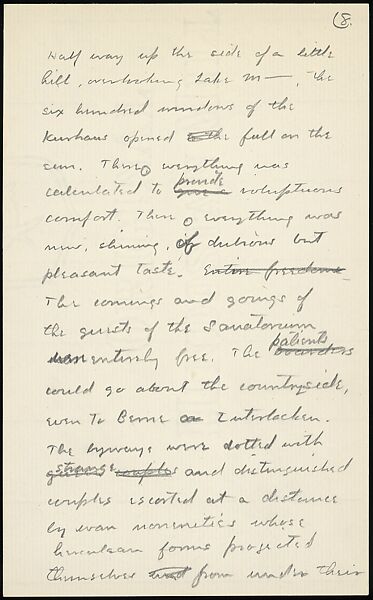 8.
Half way up the side of a little
hill, overlooking Lake M—, the
six hundred windows of the
Kurhaus opened to the full on the
sun. There everything was
provide
calculated to give a voluptuous
comfort. There everything was
new, shining, of dubious but
pleasant taste. Entire freedom
The comings and goings of
the guests of the Sanatorium
patients
were entirely free. The boarders
could go about the countryside,
even to Berne or Interlaken.
The byways were dotted with
strange
couples and distinguished
couples escorted at a distance
by wan whose
herculean forms projected
themselves and from under their